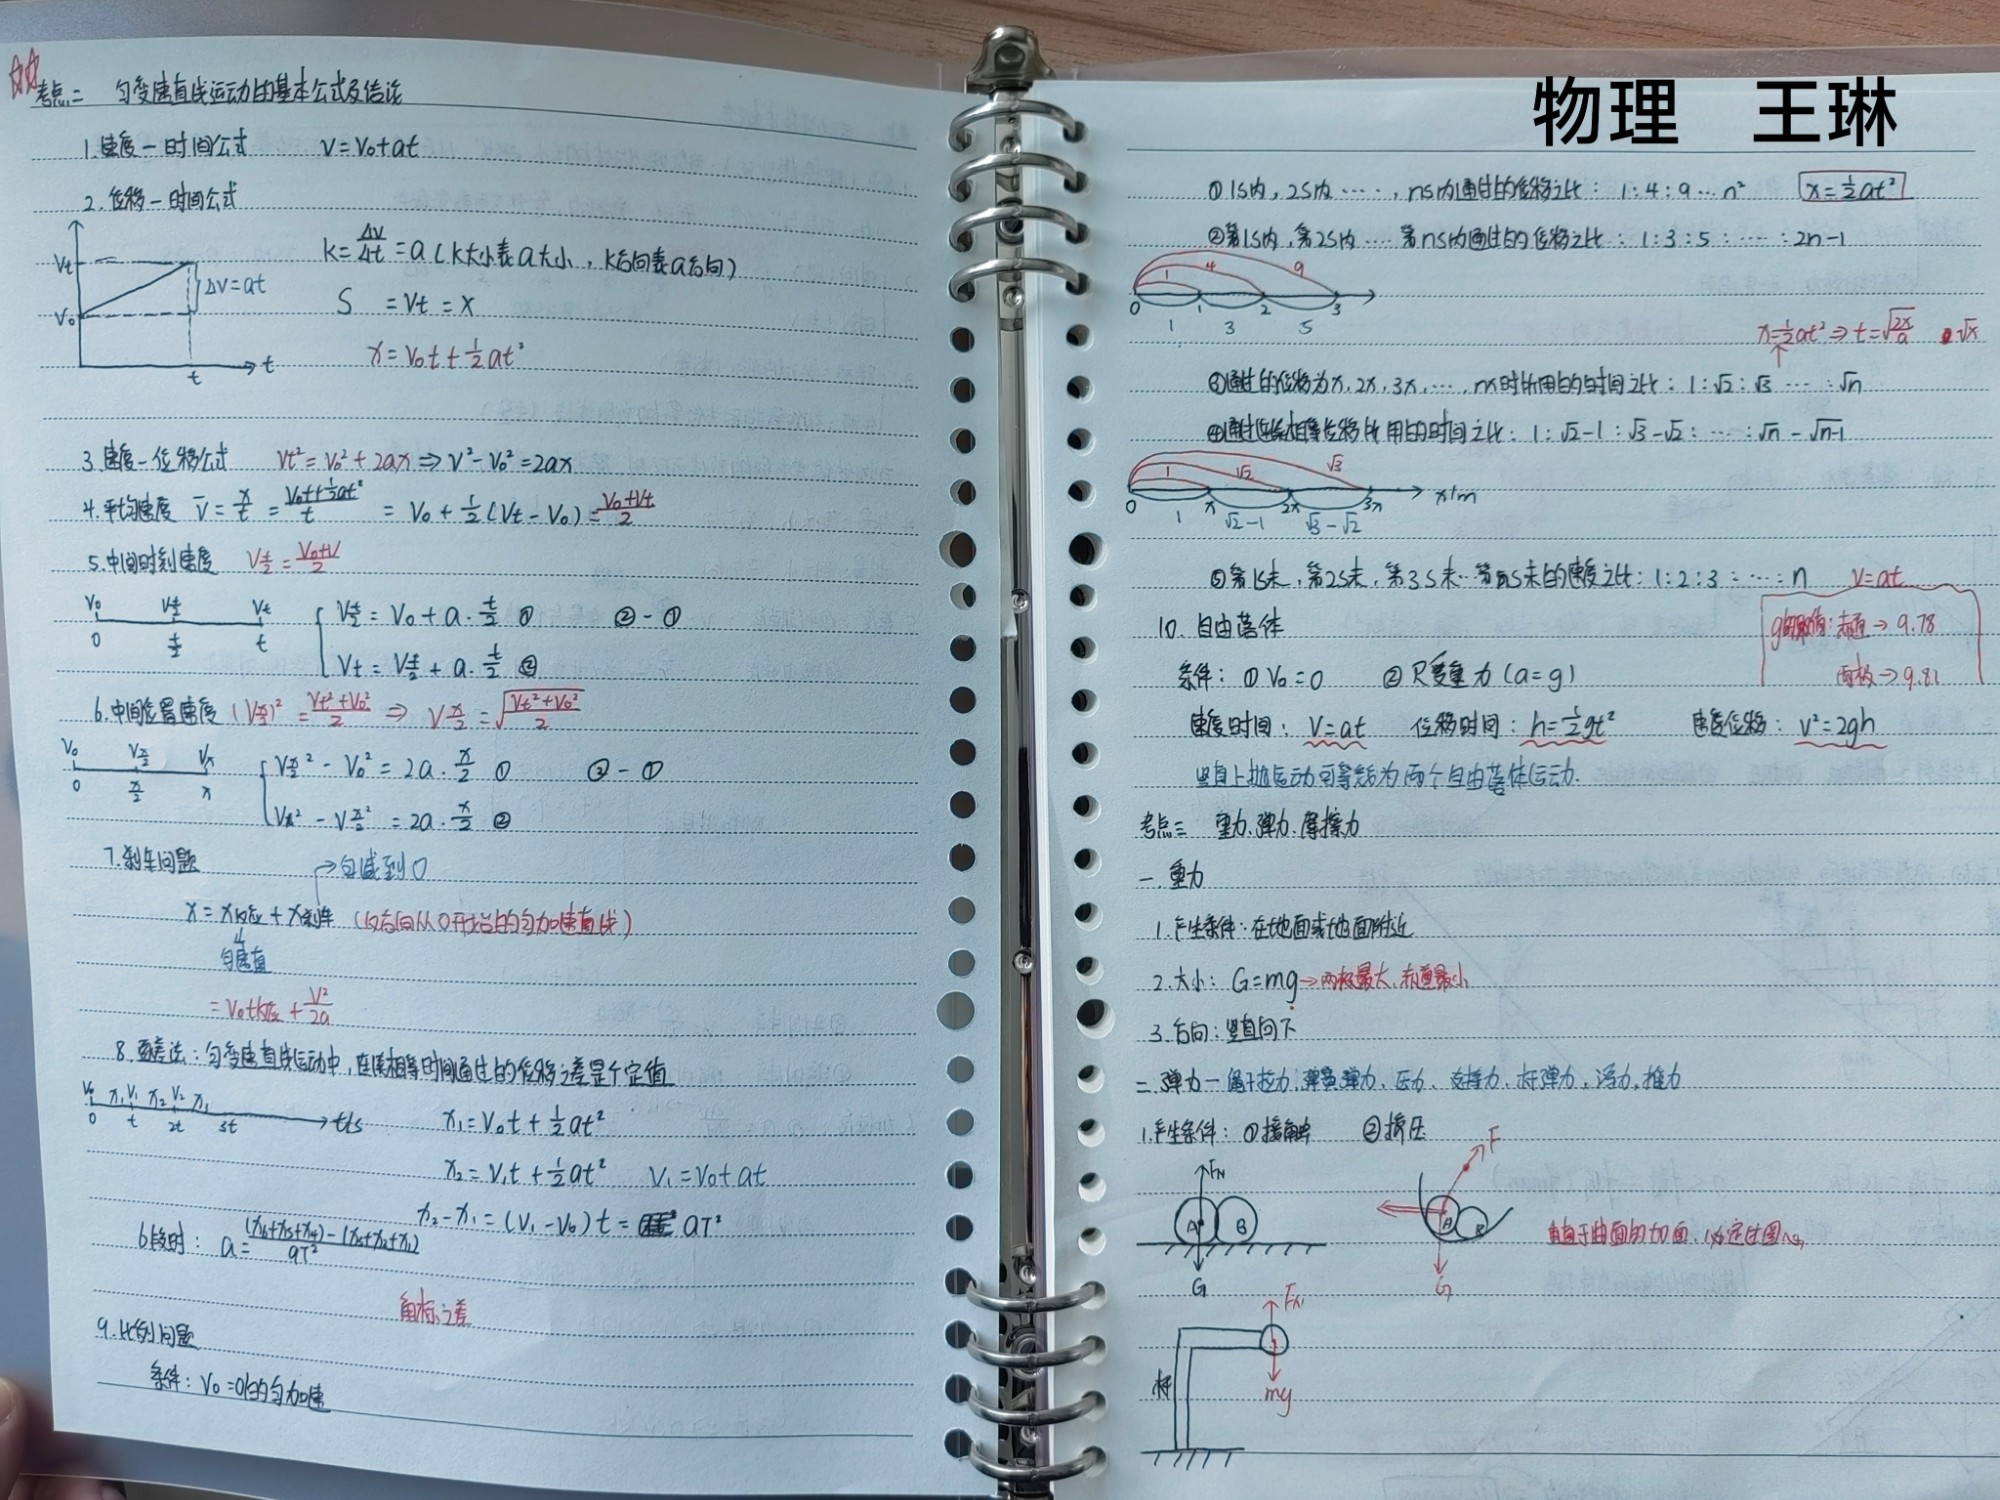 考点二 匀变速直线运动的基本公式及结论
1.速度一时间公式 v=v₀+at
2.位移一时间公式
Vt
V₀
Δv=at
t
t
k=Δv/Δt=a(k大小表a大小,k方向表a方向)
S =vt=x
x=v₀t+½at²
3.速度一位移公式 Vt²=V₀²+2ax⇒V²-V₀²=2ax
4.平均速度 v̄=x/t=(V₀t+½at²)/t=V₀+½(Vt-V₀)=(V₀+Vt)/2
5.中间时刻速度 V t/2=(V₀+V)/2
V₀ V t/2 Vt
0 t/2 t
V t/2=V₀+a·t/2 ① ②-①
Vt=V t/2+a·t/2 ②
6.中间位置速度(V x/2)²=(Vt²+V₀²)/2 ⇒ V x/2=√((Vt²+V₀²)/2)
V₀ V x/2 Vx
0 x/2 x
V x/2²-V₀²=2a·x/2 ① ②-①
Vx²-V x/2²=2a·x/2 ②
7.刹车问题
→匀减到0
x=x反应+x刹车(反方向从0开始的匀加速直线)
匀速直
=V₀t反应+V²/2a
8.逐差法:匀变速直线运动中,连续相等时间通过的位移之差是个定值
V₀ x₁ V₁ x₂ V₂ x₃
0 t 2t 3t t/s
x₁=V₀t+½at²
x₂=V₁t+½at² V₁=V₀+at
x₂-x₁=(V₁-V₀)t= aT²
6段时:a=((x₆+x₅+x₄)-(x₃+x₂+x₁))/9T²
角标之差
9.比例问题
条件:V₀=0的匀加速
物理 王琳
①1s内,2s内……,ns内通过的位移之比:1:4:9…n² x=½at²
②第1s内,第2s内……第ns内通过的位移之比:1:3:5:……:2n-1
1 4 9
0 1 2 3
1 3 5
x=½at²⇒t=√(2x/a) √x
③通过的位移为x,2x,3x,……,nx时所用的时间之比:1:√2:√3……:√n
④通过连续相等位移所用的时间之比:1:√2-1:√3-√2:……:√n-√(n-1)
1 √2 √3
0 x 2x 3x x/m
1 √2-1 √3-√2
⑤第1s末,第2s末,第3s末…第ns末的速度之比:1:2:3:……:n v=at
10.自由落体
g的取值:赤道→9.78
两极→9.81
条件:①V₀=0 ②只受重力(a=g)
速度时间:V=at 位移时间:h=½gt² 速度位移:v²=2gh
竖直上抛运动可等效为两个自由落体运动.
考点三 重力、弹力、摩擦力
一.重力
1.产生条件:在地面或地面附近
2.大小:G=mg→两极最大,赤道最小
3.方向:竖直向下
二.弹力一绳子拉力,弹簧弹力,压力,支持力,杆弹力,浮力,推力
1.产生条件:①接触 ②挤压
FN
A B
G
F
A B
G
垂直于曲面的切面,
FN
杆
mg